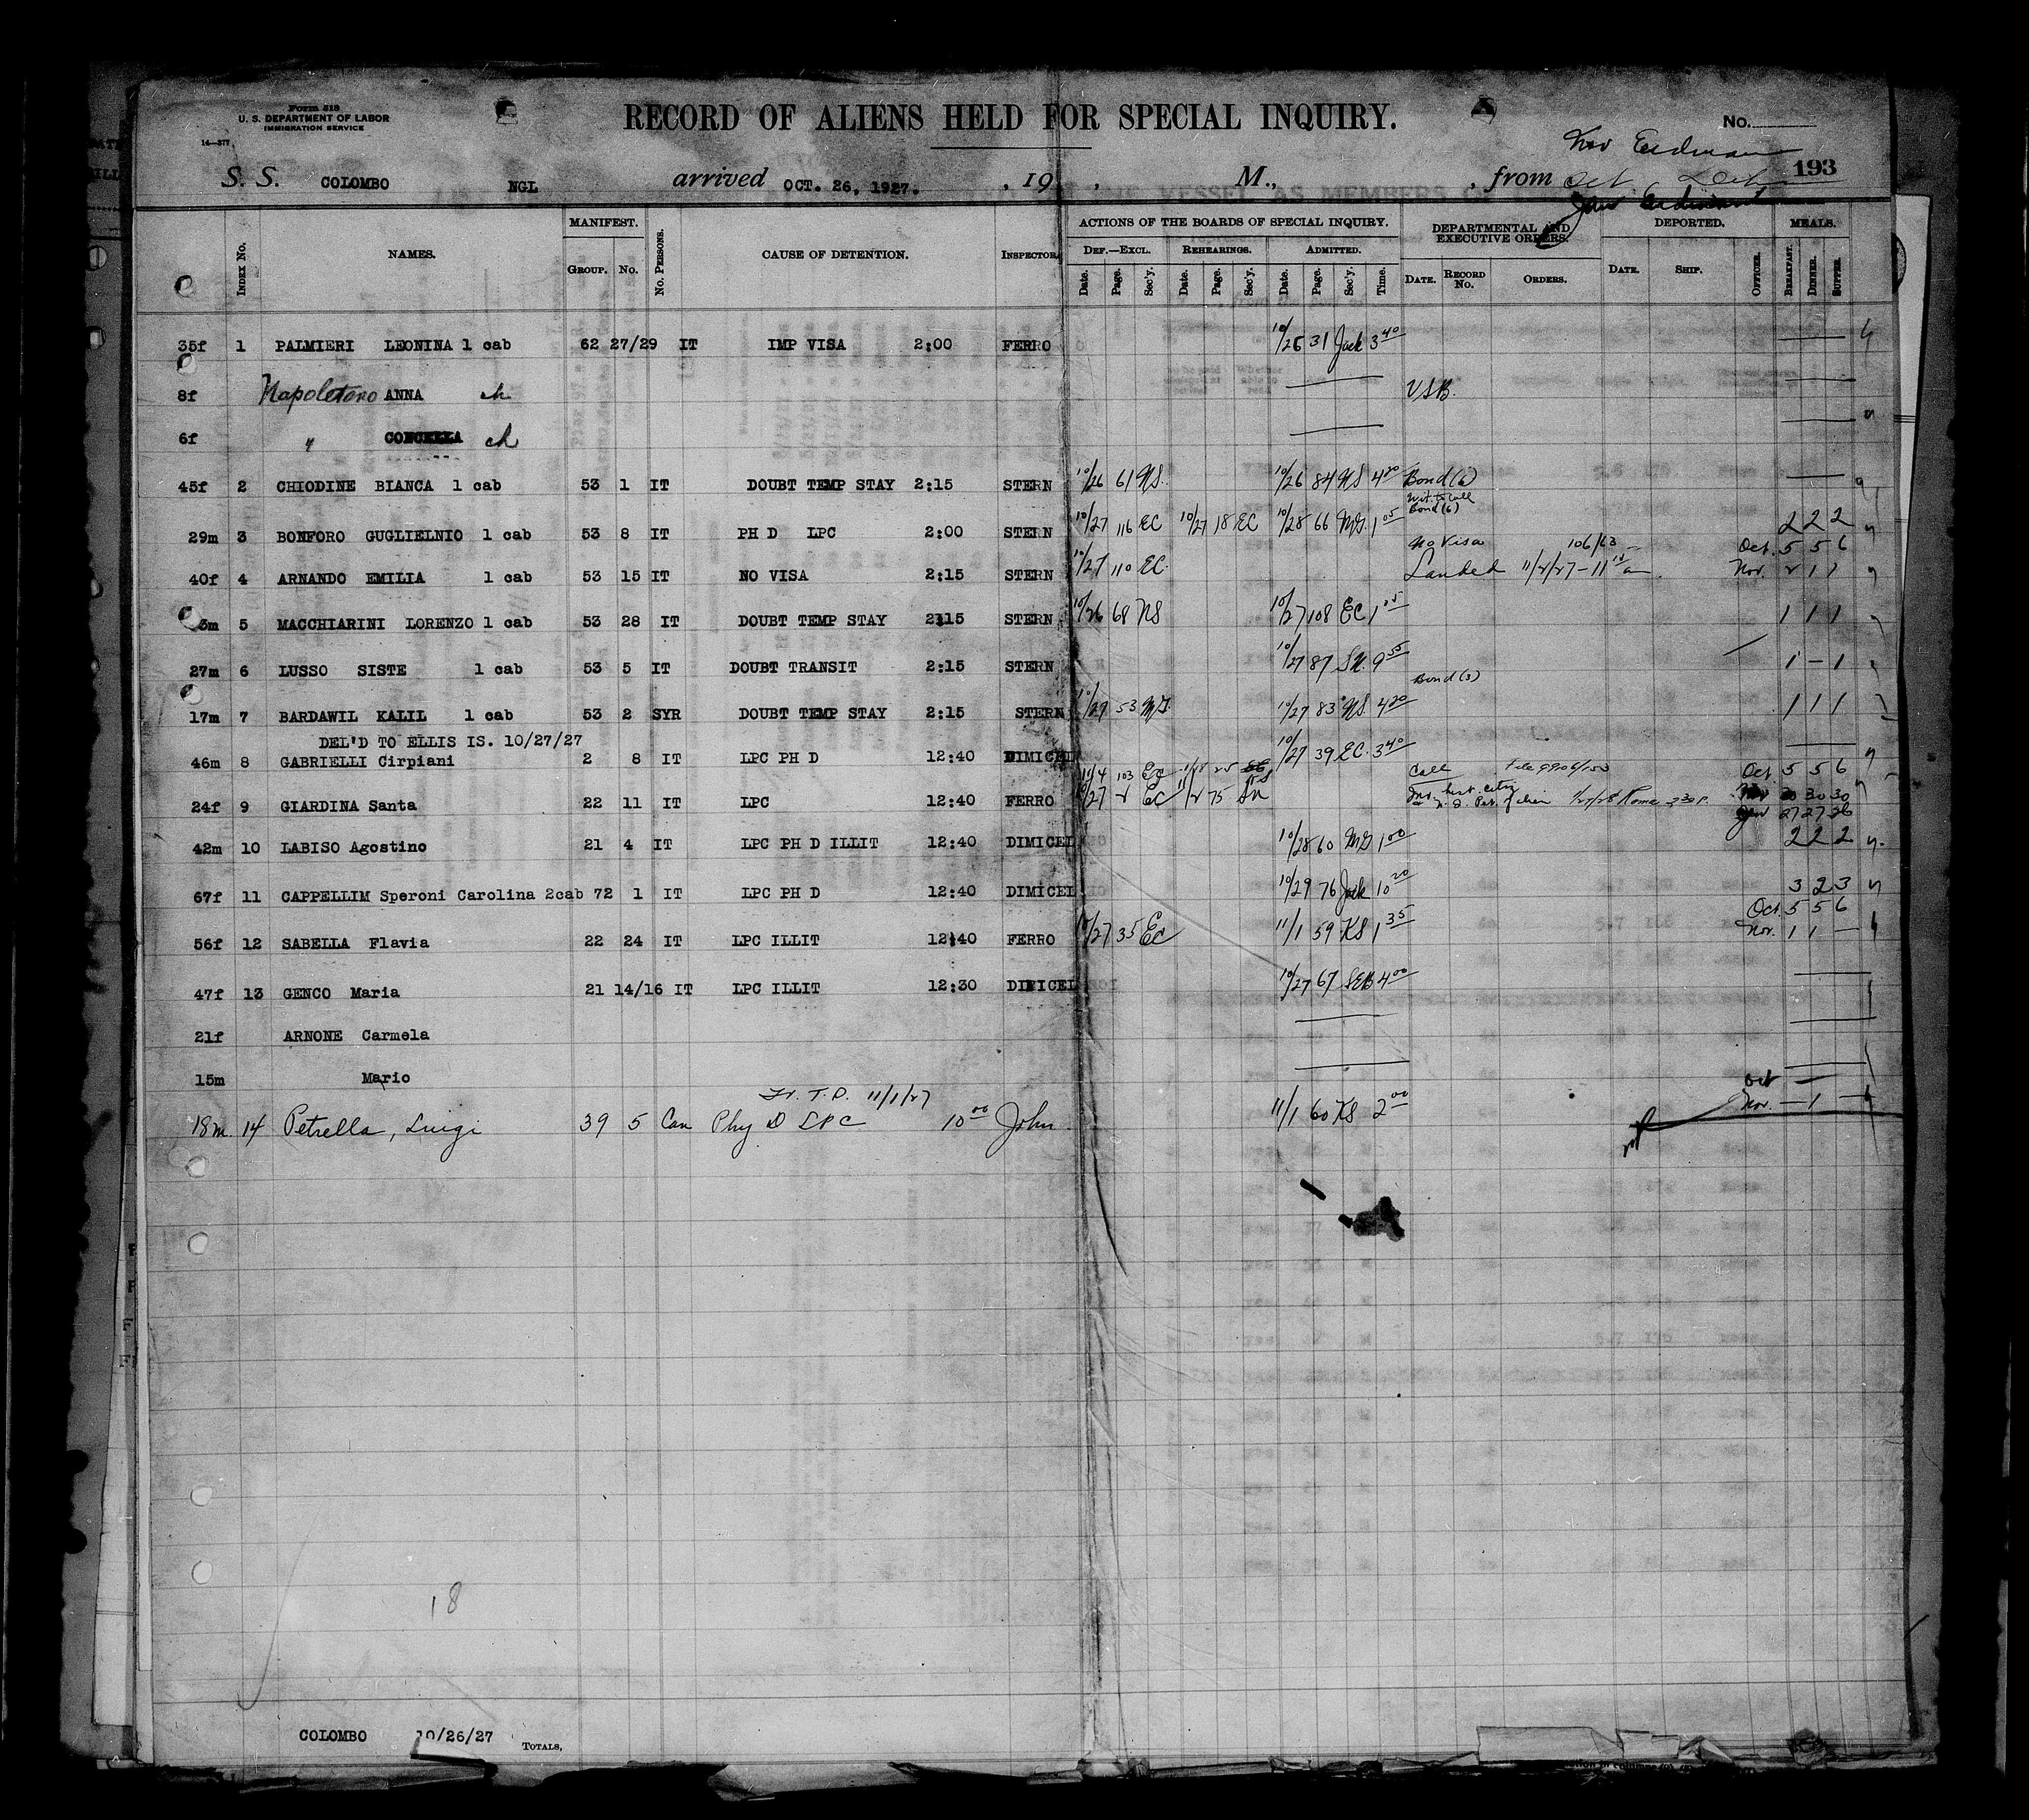 Form 518
U. S. DEPARTMENT OF LABOR
IMMIGRATION SERVICE
14—377
RECORD OF ALIENS HELD FOR SPECIAL INQUIRY.
No.
193
S. S. COLOMBO NGL arrived OCT. 26, 1927. , 19 , M., , from
Index No. NAMES. MANIFEST. Group. No. No. Persons. CAUSE OF DETENTION. Inspector. ACTIONS OF THE BOARDS OF SPECIAL INQUIRY. DEPARTMENTAL AND EXECUTIVE ORDERS. DEPORTED. MEALS.
Def.—Excl. Rehearings. Admitted.
Date. Page. Sec'y. Date. Page. Sec'y. Date. Page. Sec'y. Time. Date. Record No. Orders. Date. Ship. Officer. Breakfast. Dinner. Supper.
35f 1 PALMIERI LEONINA 1 cab 62 27/29 IT IMP VISA 2:00 FERRO 10/26 31 Jack 3 40
8f Napoletano ANNA ch USB.
6f " CONCELLA ch
45f 2 CHIODINE BIANCA 1 cab 53 1 IT DOUBT TEMP STAY 2:15 STERN 10/26 61 NS. 10/26 84 NS 4 20 Bond (6)
Bond (6)
29m 3 BONFORO GUGLIELNIO 1 cab 53 8 IT PH D LPC 2:00 STERN 10/27 116 EC 10/27 18 EC 10/28 66 MG. 1 05 2 2 2
No Visa 106/63 Oct. 5 5 6
40f 4 ARNANDO EMILIA 1 cab 53 15 IT NO VISA 2:15 STERN 10/27 110 EC. Landed 11/2/27 – 11 15 a Nov. 2 1 1
3m 5 MACCHIARINI LORENZO 1 cab 53 28 IT DOUBT TEMP STAY 2:15 STERN 10/26 68 NS 10/27 108 EC 1 1 1 1
27m 6 LUSSO SISTE 1 cab 53 5 IT DOUBT TRANSIT 2:15 STERN 10/27 87 9 55 1 – 1
Bond (3)
17m 7 BARDAWIL KALIL 1 cab 53 2 SYR DOUBT TEMP STAY 2:15 STERN 53 10/27 83 NS 4 20 1 1 1
DEL'D TO ELLIS IS. 10/27/27
46m 8 GABRIELLI Cirpiani 2 8 IT LPC PH D 12:40 DIMICEL 10/27 39 EC. 3 40
11/4 103 EC Call Oct. 5 5 6
24f 9 GIARDINA Santa 22 11 IT LPC 12:40 FERRO 10/27 2 EC 11/2 75 30 30
27 27 26
42m 10 LABISO Agostino 21 4 IT LPC PH D ILLIT 12:40 DIMICEL 10/28 60 MG 1 00 2 2 2
67f 11 CAPPELLIM Speroni Carolina 2cab 72 1 IT LPC PH D 12:40 DIMICEL 10/29 76 Jack 10 20 3 2 3
Oct. 5 5 6
56f 12 SABELLA Flavia 22 24 IT LPC ILLIT 12:40 FERRO 10/27 35 EC 11/1 59 KS 1 35 Nov. 1 1 –
47f 13 GENCO Maria 21 14/16 IT LPC ILLIT 12:30 DIMICEL 10/27 67 SEB 4 00
21f ARNONE Carmela
15m Mario
T.D. 11/1/27 Oct –
18m. 14 Petrella, Luigi 39 5 Can Phy D LPC 10 00 John 11/1 60 KS 2 00 Nov. – 1 –
18
COLOMBO 10/26/27 Totals,